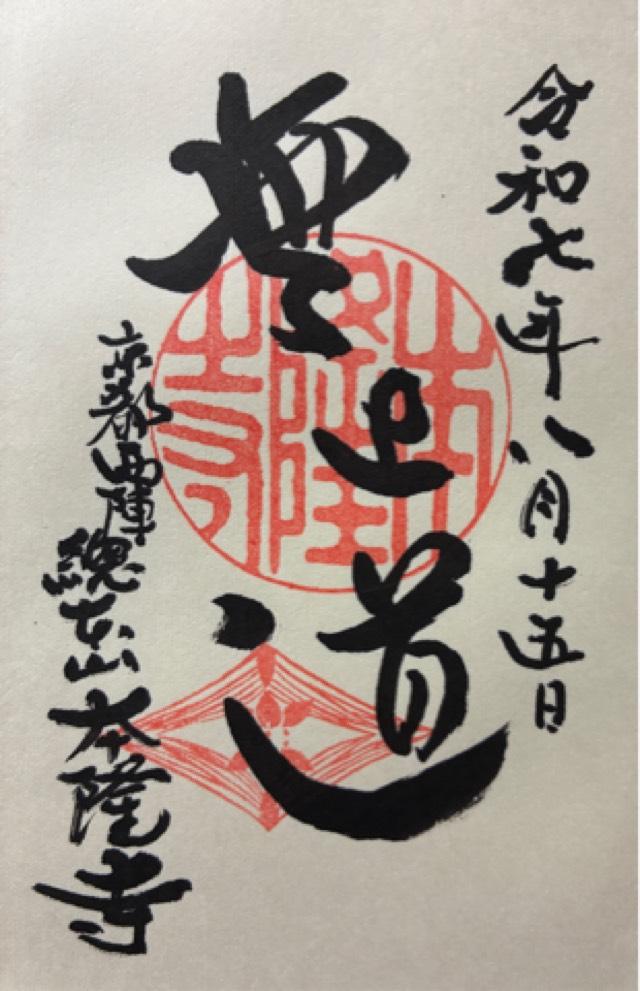 令和七年八月十五日
無上道
本隆寺
京都西陣総本山本隆寺